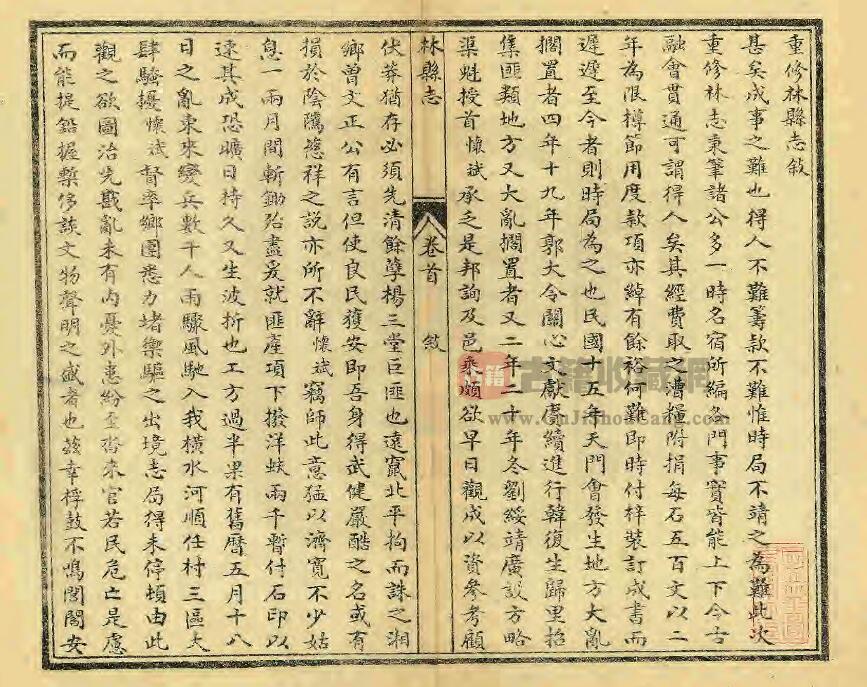 重修林縣志敘
甚矣成事之難也得人不難籌款不難惟時局不靖之為難此次
重修林志秉筆諸公多一時名宿所編各門事實皆能上下今古
融會貫通可謂得人矣其經費取之漕糧附捐每石五百文以二
年為限樽節用度款項亦綽有餘裕何難即時付梓裝訂成書而
遲遲至今者則時局為之也民國十五年天門會發生地方大亂
擱置者四年十九年郭大令關心文獻賡續進行韓復生歸里招
集匪類地方又大亂擱置者又二年二十年冬劉綏靖廣設方略
渠魁授首懷斌承乏是邦詢及邑乘頗欲早日觀成以資參考顧
林縣志
卷首
敘
伏莽猶存必須先清餘孽楊三堂巨匪也遠竄北平拘而誅之湘
鄉曾文正公有言但使良民獲安即吾身得武健嚴酷之名或有
損於陰騭慈祥之說亦所不辭懷斌竊師此意猛以濟寬不少姑
息一兩月間斬鋤殆盡爰就匪產項下撥洋蚨兩千暫付石印以
速其成恐曠日持久又生波折也工方過半果有舊曆五月十八
日之亂東來變兵數千人雨驟風馳入我橫水河順任村三區大
肆騷擾懷斌督率鄉團悉力堵禦驅之出境志局得未停頓由此
觀之欲圖治先戡亂未有內憂外患紛至沓來官若民危亡是慮
而能提鉛握槧侈談文物聲明之盛者也茲幸桴鼓不鳴閭閻安
古籍收藏网
www.GuJiShouCang.com